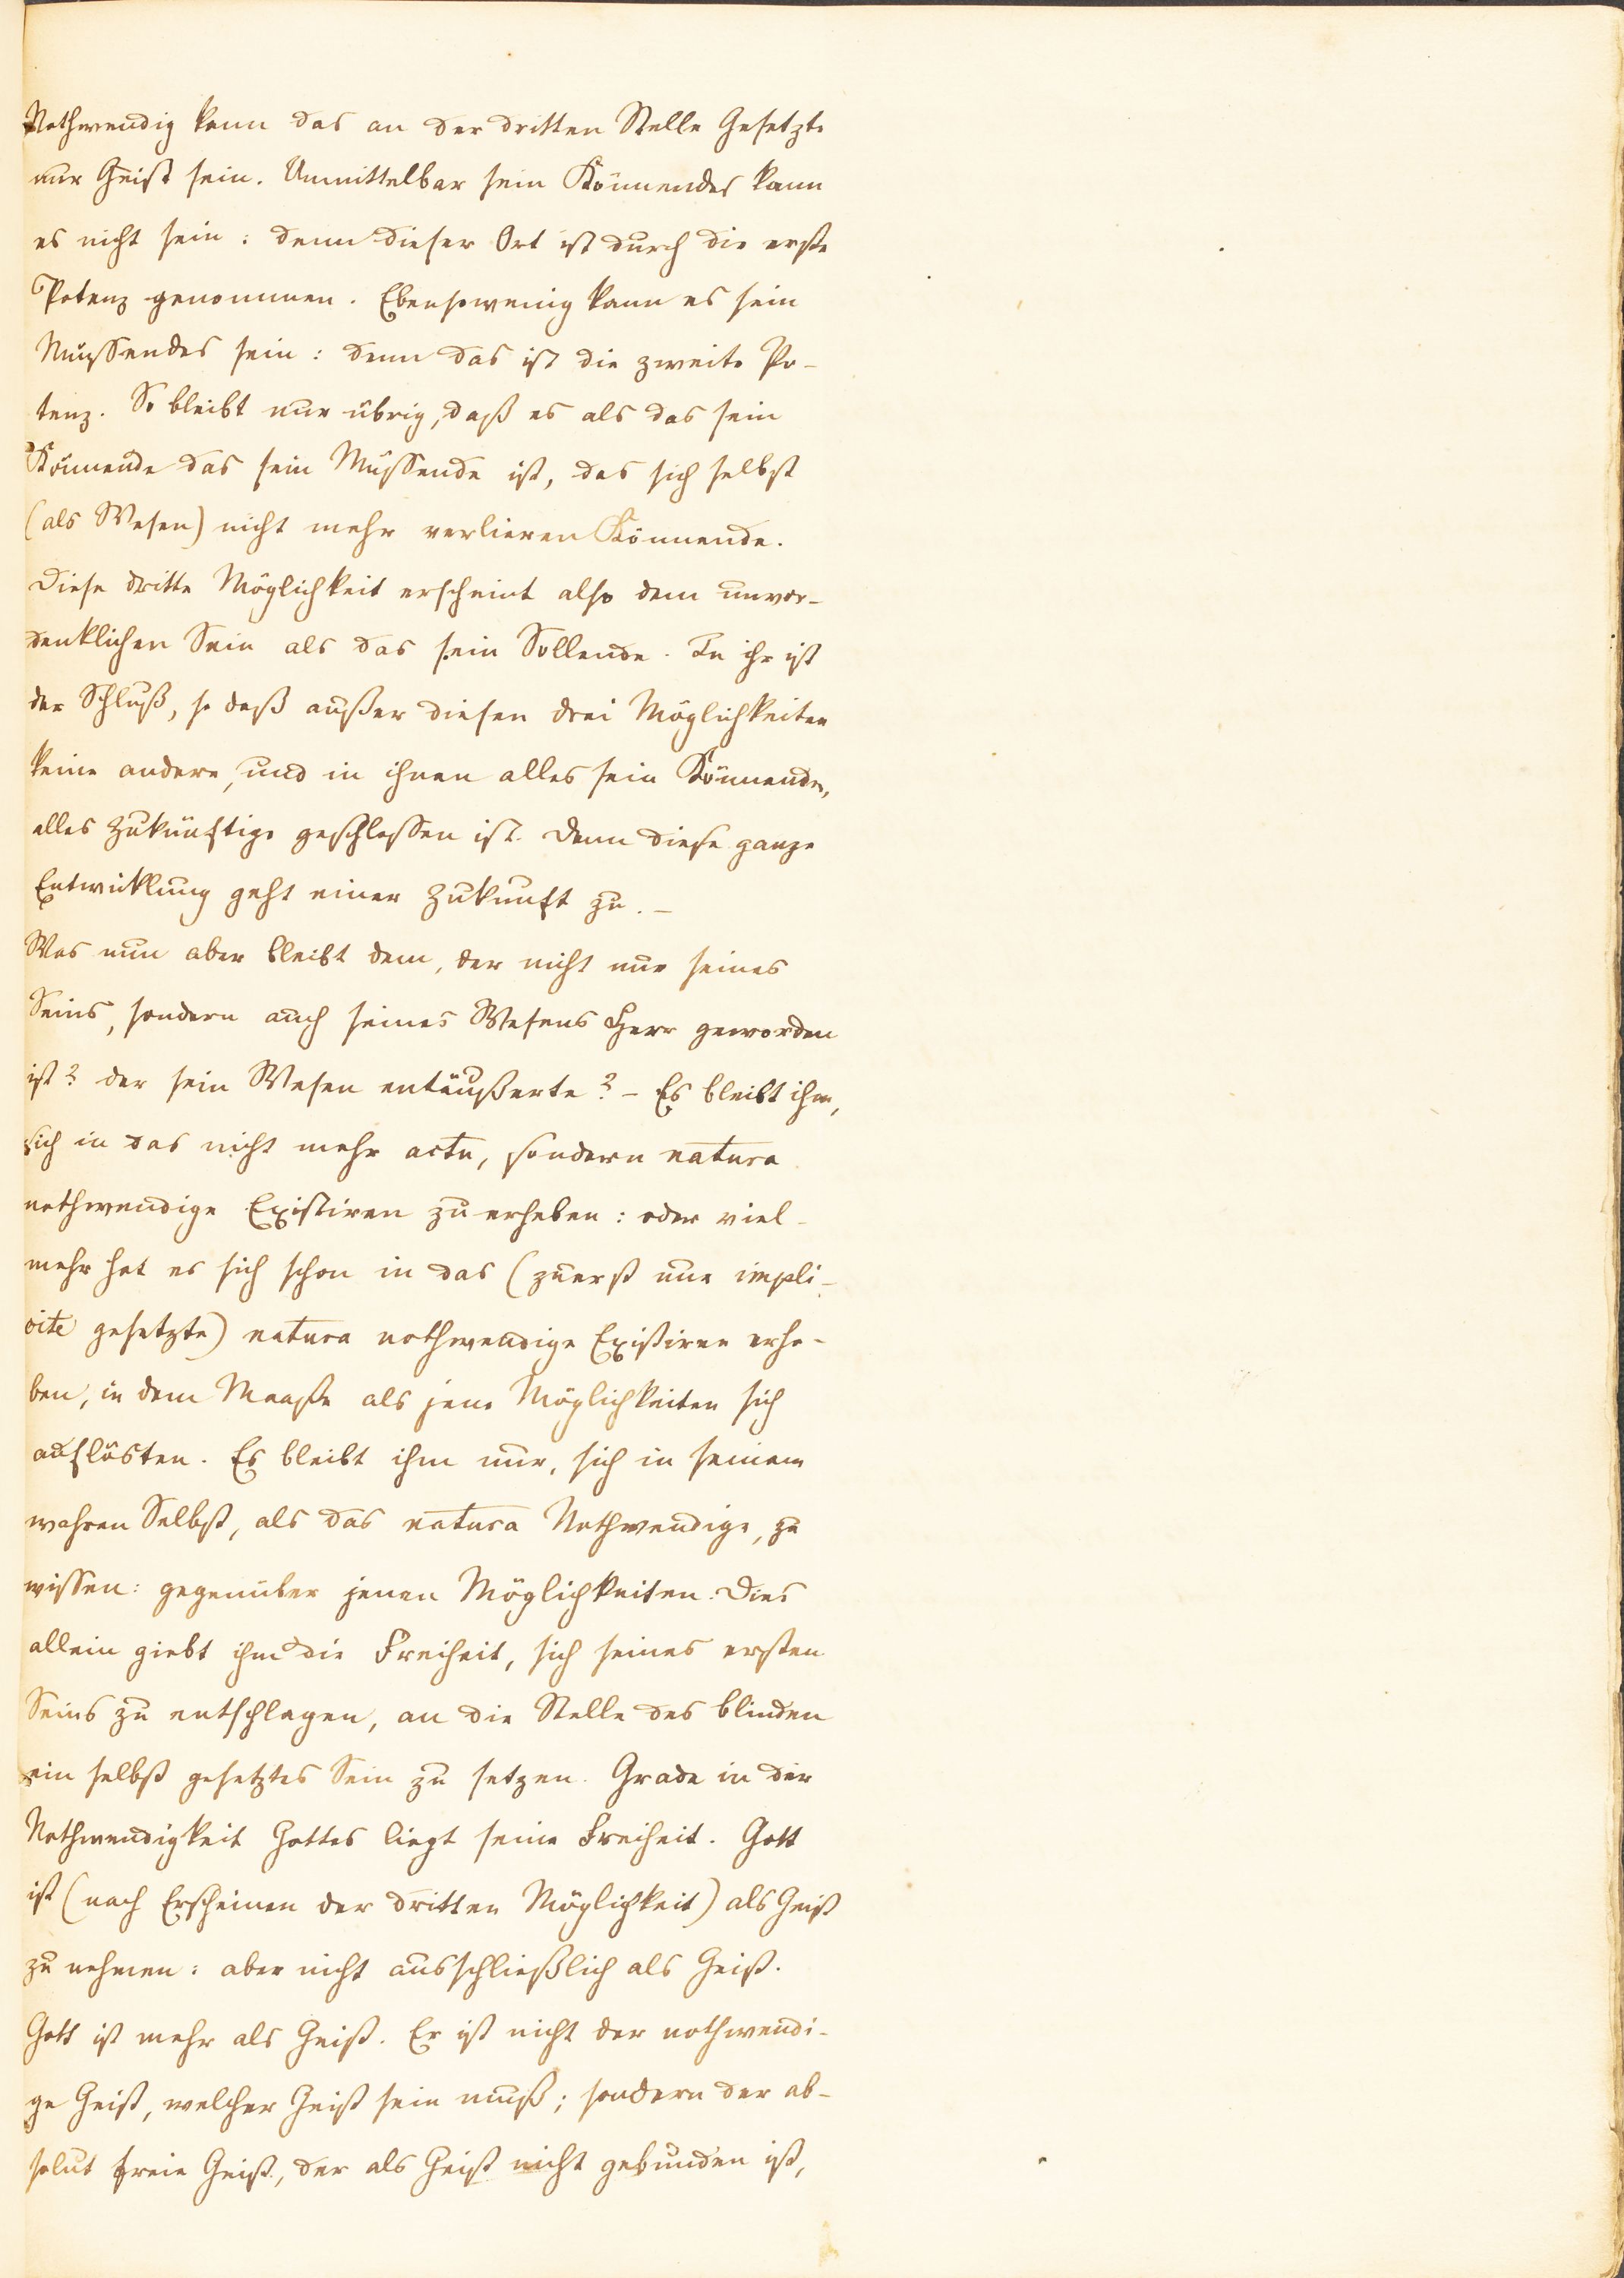 Nothwendig kann das an der dritten Stelle Gesetzte
nur Geist sein. Unmittelbar sein Könnendes kann
es nicht sein: denn dieser Ort ist durch die erste
Potenz genommen. Ebensowenig kann es sein
Müssendes sein: denn das ist die zweite Po-
tenz. So bleibt nur übrig, daß es als das sein
Könnende das sein Müssende ist, das sich selbst
(als Wesen) nicht mehr verlieren Könnende.
Diese dritte Möglichkeit erscheint also dem unvor-
denklichen Sein als das sein Sollende. In ihr ist
der Schluß, so daß außer diesen drei Möglichkeiten
keine andere, und in ihnen alles sein Könnende,
alles Zukünftige geschlossen ist. Denn diese ganze
Entwicklung geht einer Zukunft zu. –
Was nun aber bleibt dem, der nicht nur seines
Seins, sondern auch seines Wesens Herr geworden
ist? der sein Wesen entäußerte? – Es bleibt ihm,
sich in das nicht mehr actu, sondern natura
nothwendige Existiren zu erheben: oder viel-
mehr hat es sich schon in das (zuerst nur impli-
cite gesetzte) natura nothwendige Existiren erho-
ben, in dem Maaße als jene Möglichkeiten sich
auflösten. Es bleibt ihm nur, sich in seinem
wahren Selbst, als das natura Nothwendige, zu
wissen: gegenüber jenen Möglichkeiten. Dies
allein giebt ihm die Freiheit, sich seines ersten
Seins zu entschlagen, an die Stelle des blinden
ein selbst gesetztes Sein zu setzen. Grade in der
Nothwendigkeit Gottes liegt seine Freiheit. Gott
ist (nach Erscheinen der dritten Möglichkeit) als Geist
zu nehmen: aber nicht ausschließlich als Geist.
Gott ist mehr als Geist. Er ist nicht der nothwendi-
ge Geist, welcher Geist sein muß; sondern der ab-
solut freie Geist, der als Geist nicht gebunden ist,